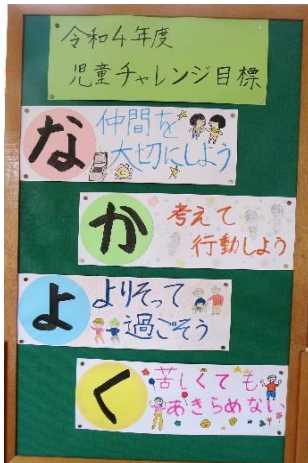 令和4年度
児童チャレンジ目標
な
仲間を
大切にしよう
か
考えて
行動しよう
よ
よりそって
過ごそう
く
苦しくても
あきらめない